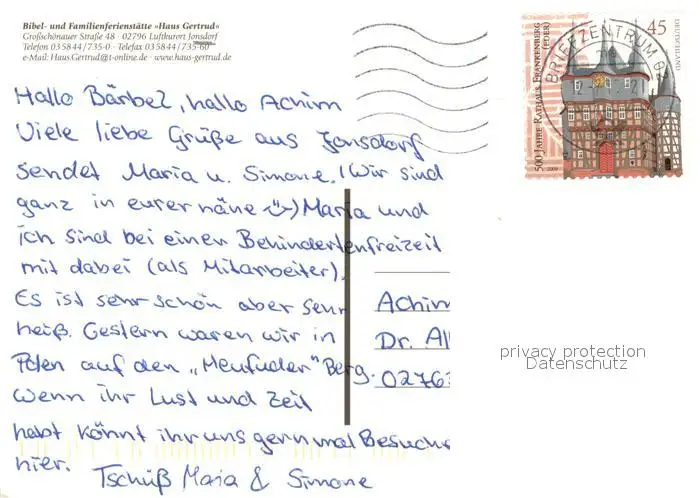 Bibel- und Familienferienstätte »Haus Gertrud«
Großschönauer Straße 48 · 02796 Luftkurort Jonsdorf
Telefon 035844/735-0 · Telefax 035844/735-60
e-Mail: Haus.Gertrud@t-online.de · www.haus-gertrud.de
Hallo Bärbel, hallo Achim
Viele liebe Grüße aus Jonsdorf
sendet Maria u. Simone. (Wir sind
ganz in eurer näne ☺) Maria und
ich sind bei einen Behindertenfreizeit
mit dabei (als Mitarbeiter).
Es ist sehr schön aber sehr
heiß. Gestern waren wir in
Polen auf den „Heufuder" Berg.
Wenn ihr Lust und Zeit
habt könnt ihr uns gern mal Besuchen
hier. Tschüß Maia & Simone
500 JAHRE RATHAUS FRANKENBERG
(EDER)
45
DEUTSCHLAND
2009
BRIEFZENTRUM 02
Achim
Dr. Al
0276
privacy protection
Datenschutz